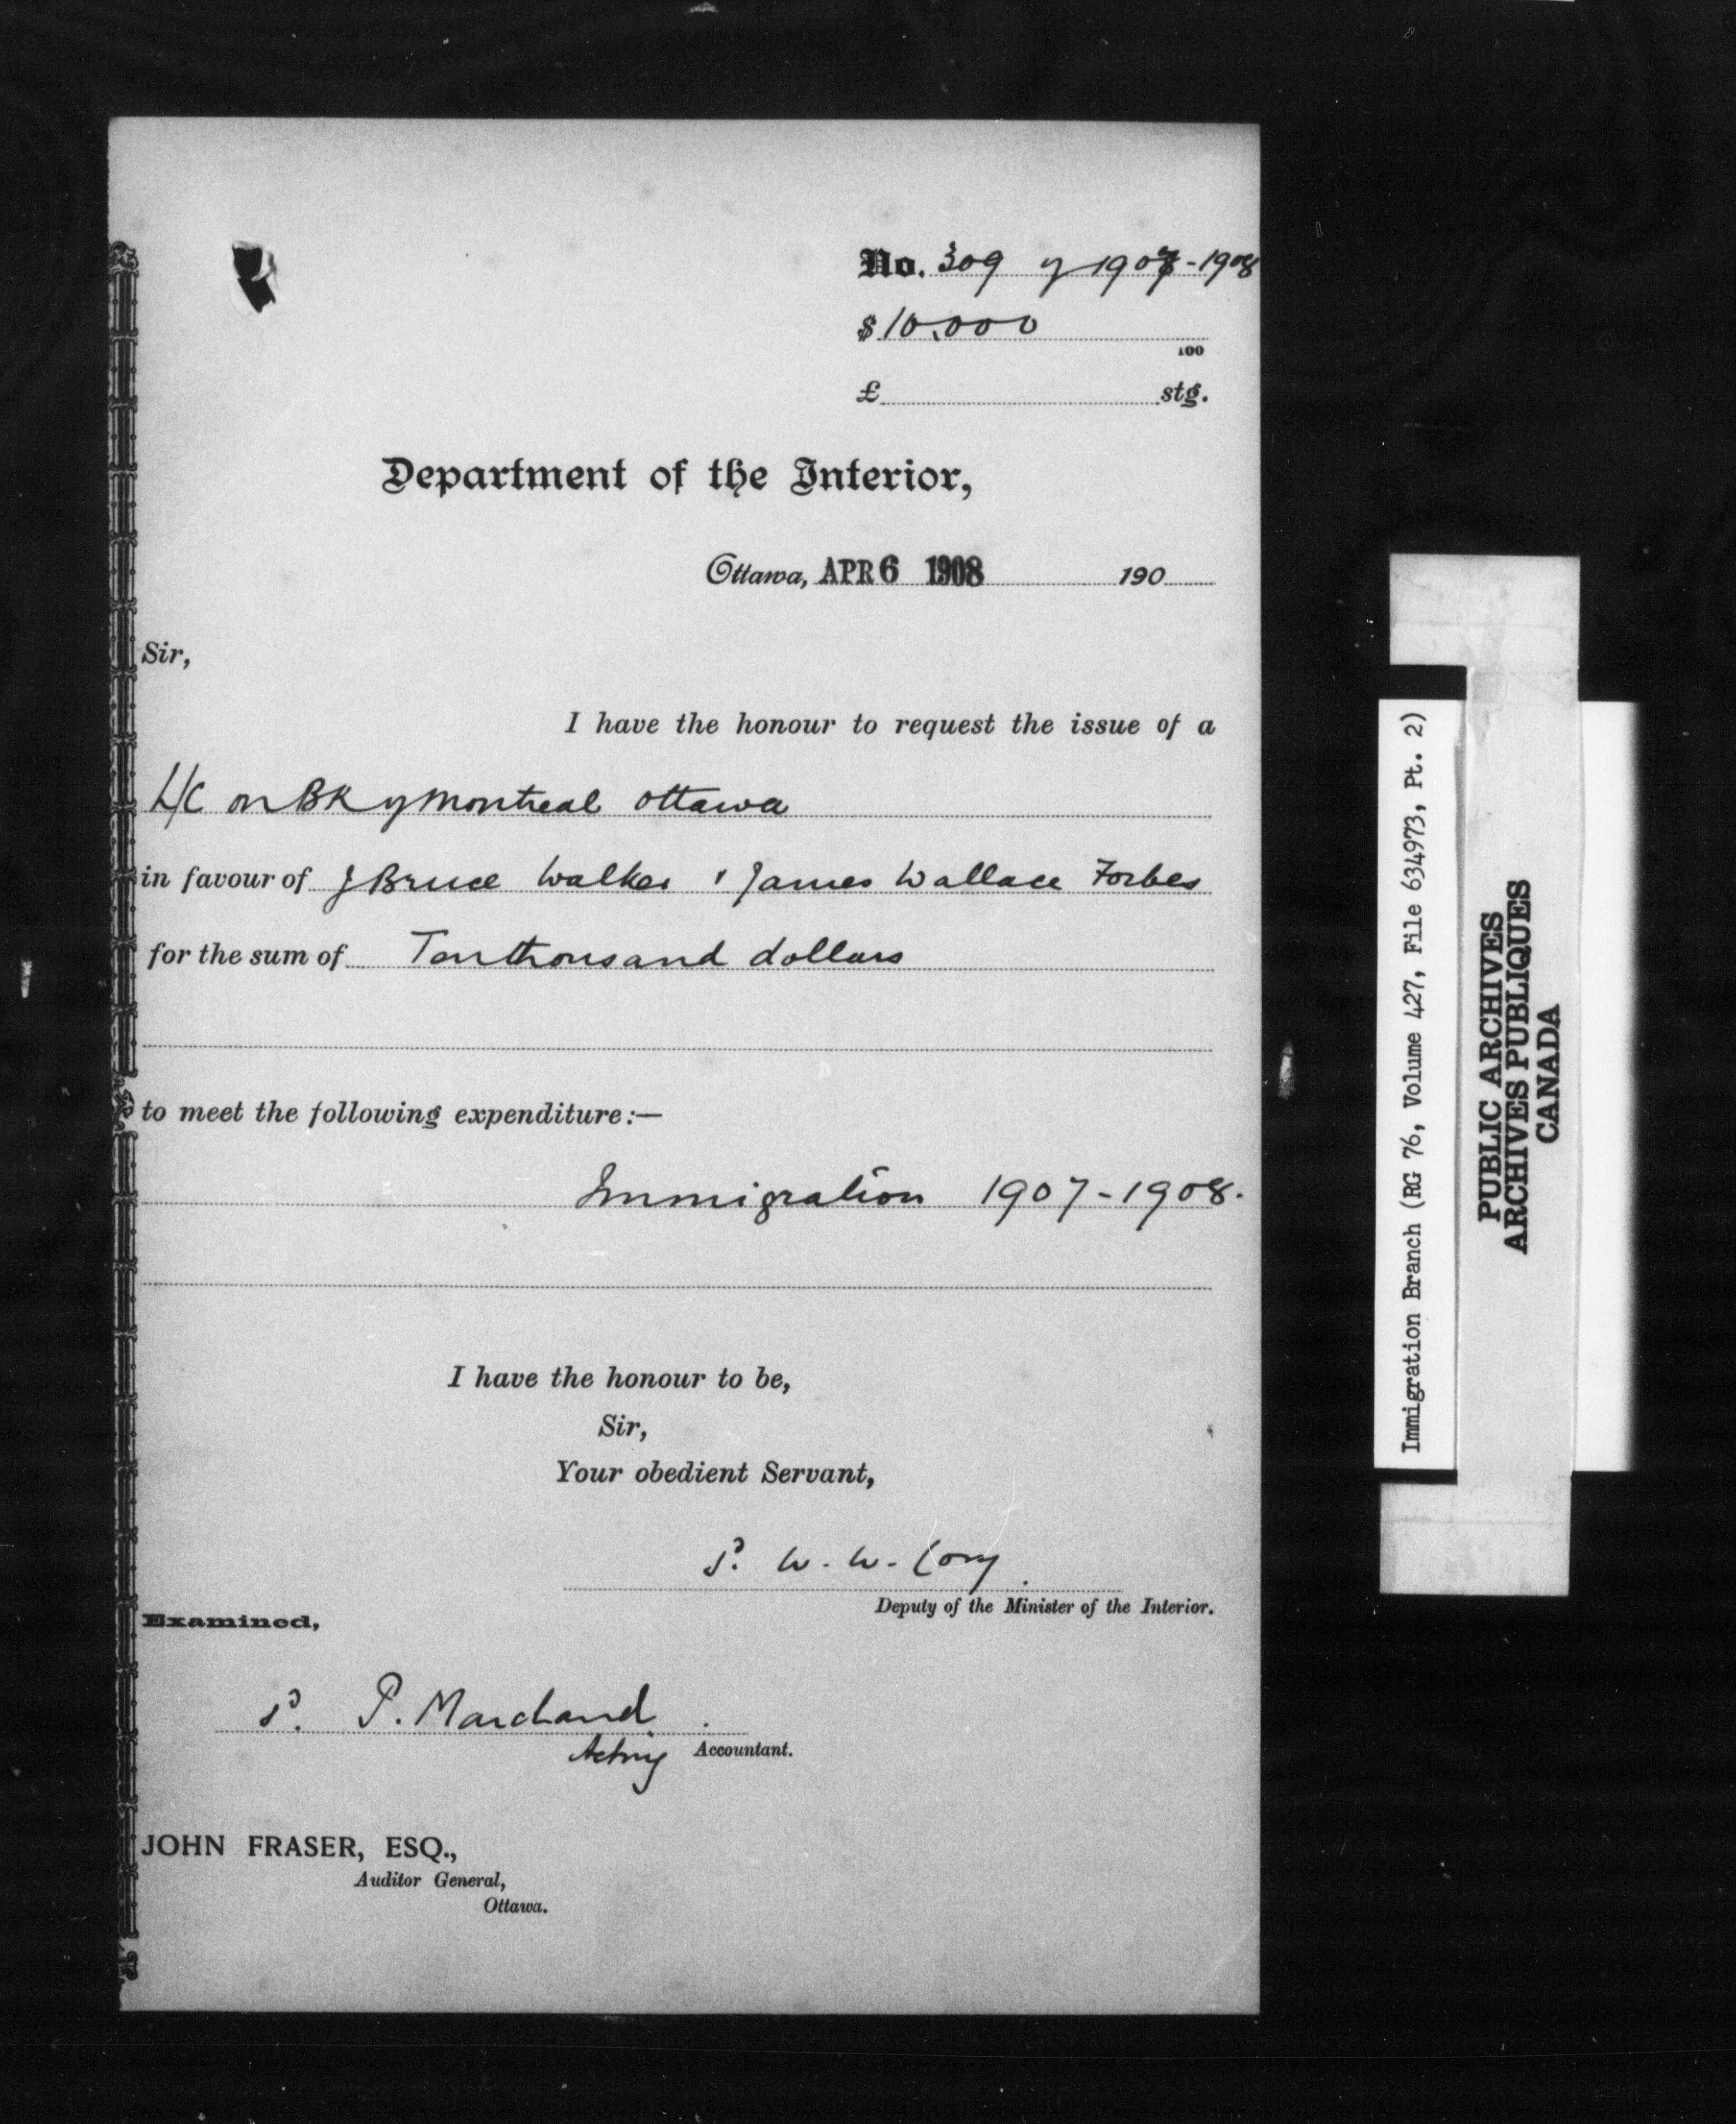 No. 309 of 1907-1908
$ 10,000
100
£ stg.
Department of the Interior,
Ottawa, APR 6 1908 190
Sir,
I have the honour to request the issue of a
L/C on BK of Montreal Ottawa
in favour of J Bruce Walker & James Wallace Forbes
for the sum of Ten thousand dollars
to meet the following expenditure:—
Immigration 1907-1908.
I have the honour to be,
Sir,
Your obedient Servant,
W. W. Cory
Deputy of the Minister of the Interior.
Examined,
P. Marchand
Acting Accountant.
JOHN FRASER, ESQ.,
Auditor General,
Ottawa.
Immigration Branch (RG 76, Volume 427, File 634973, Pt. 2)
PUBLIC ARCHIVES
ARCHIVES PUBLIQUES
CANADA